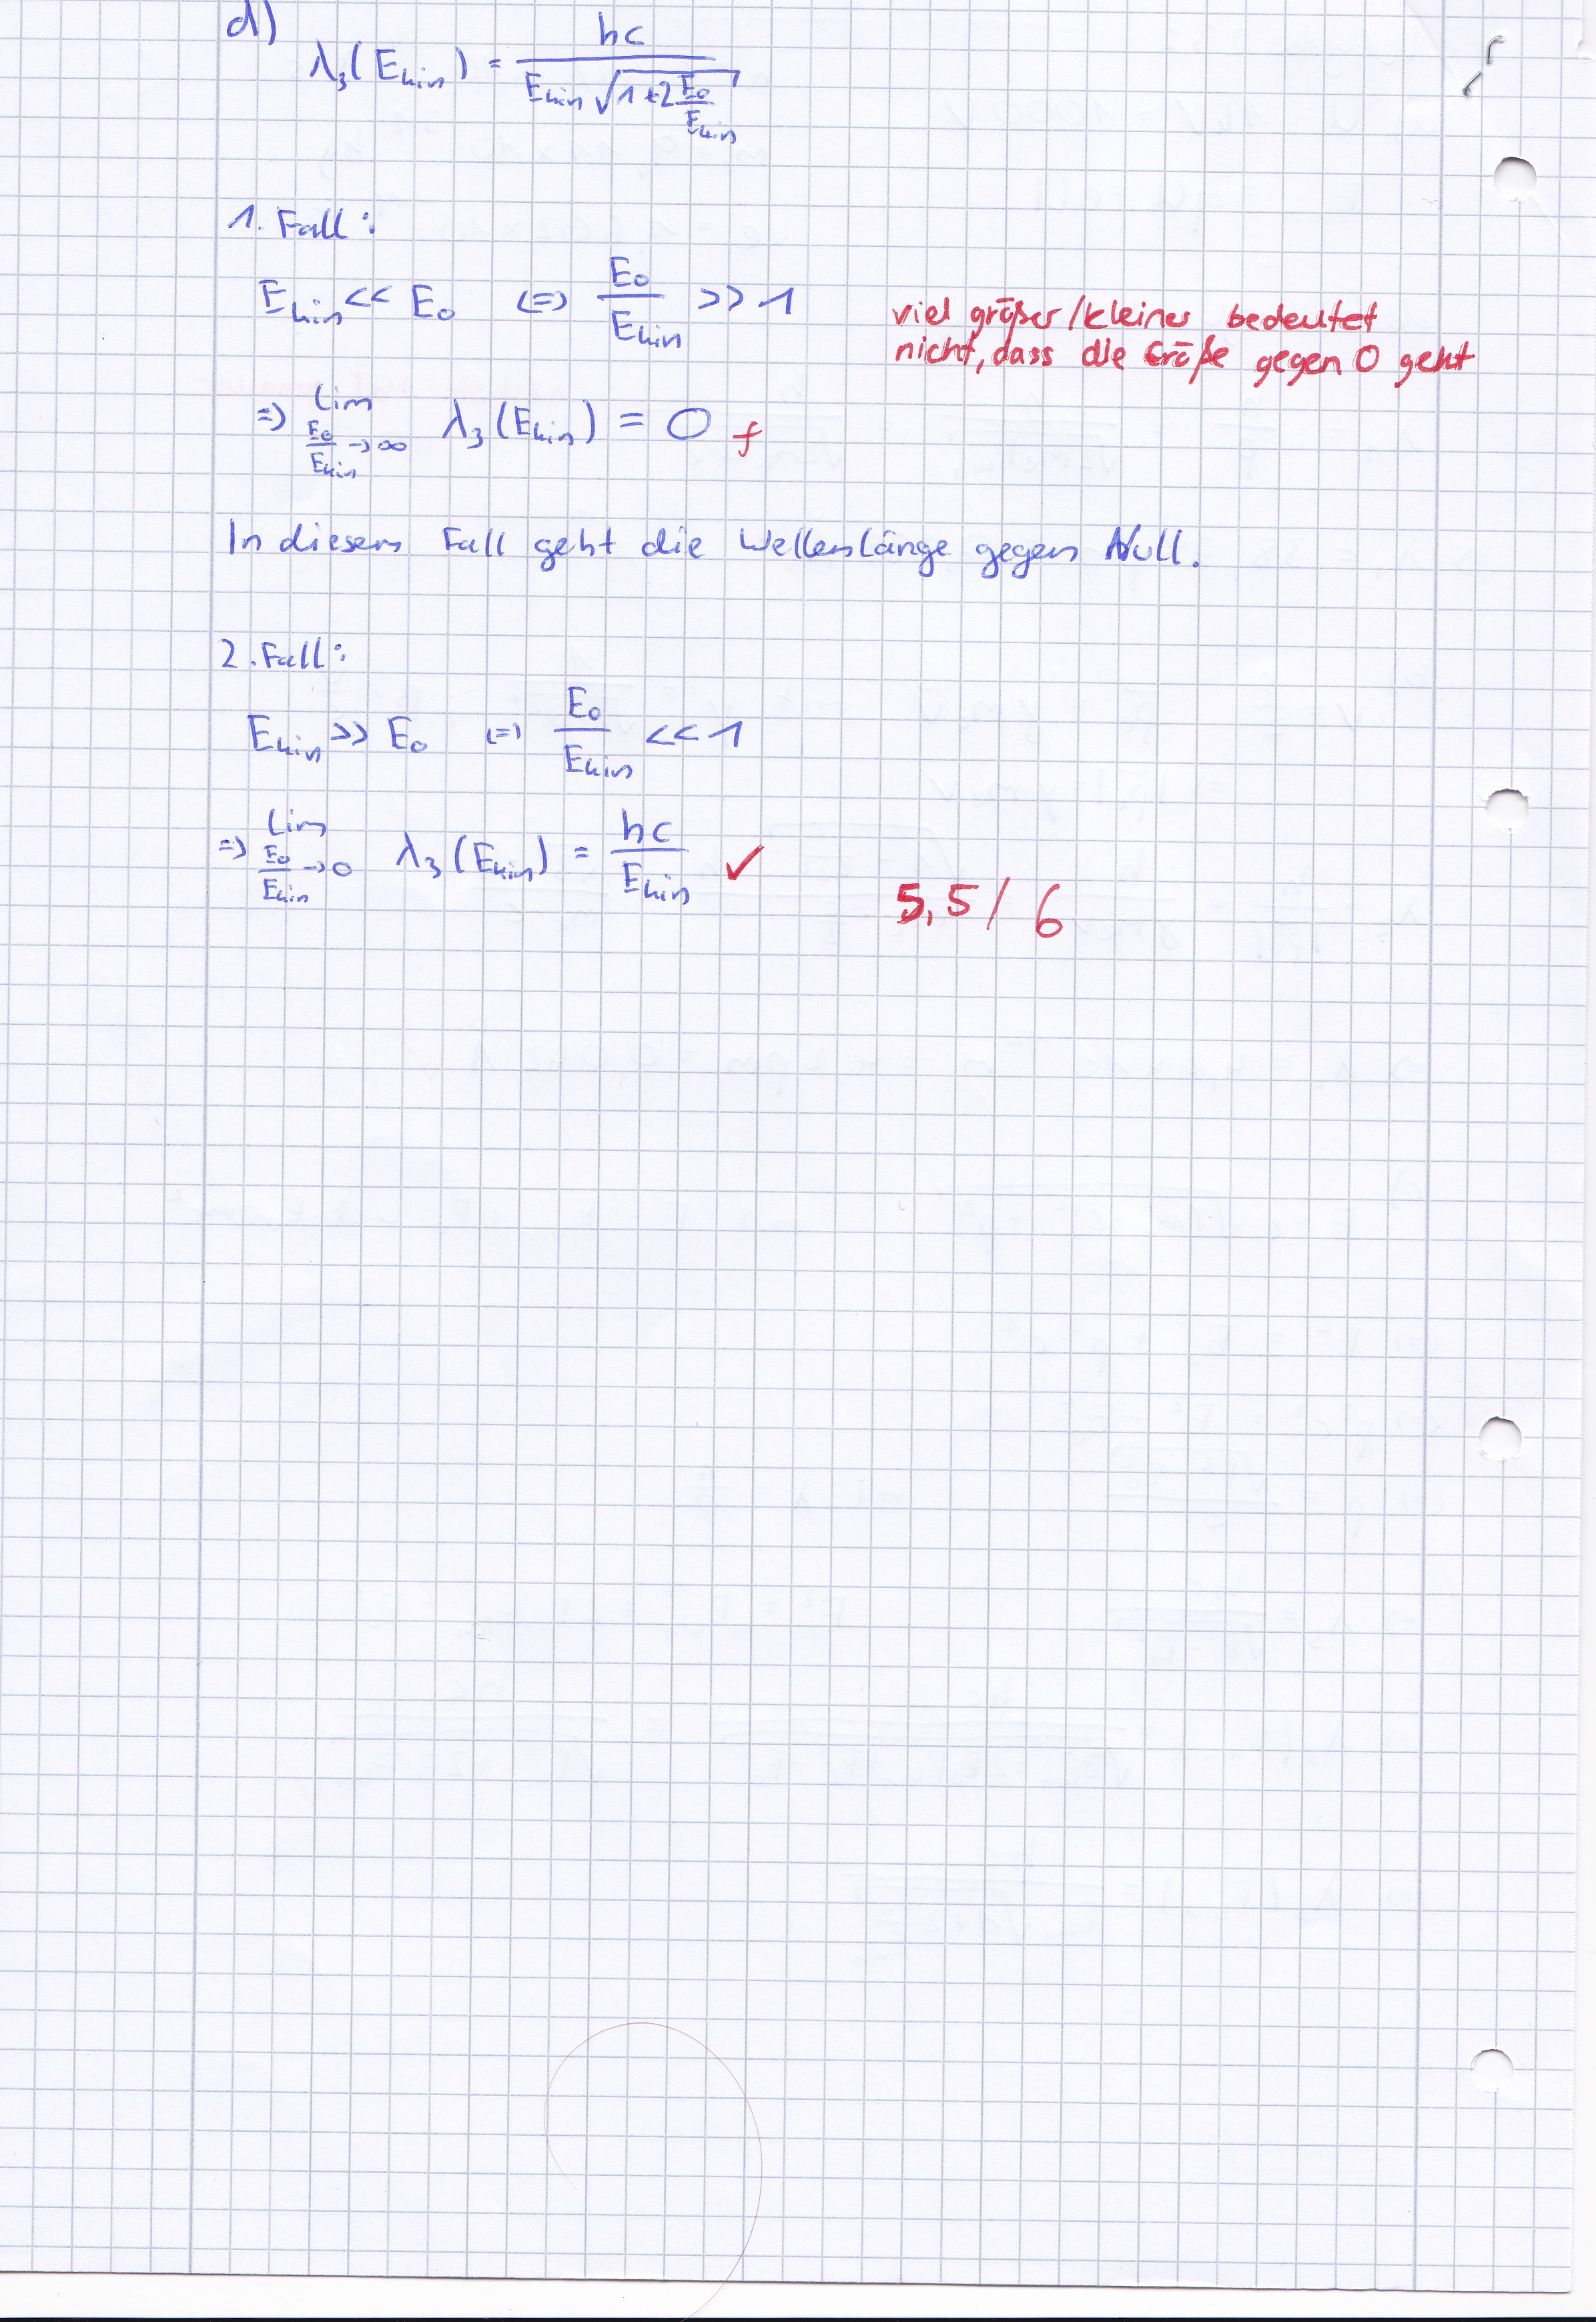 d)
λ₃(E_kin) = hc / (E_kin √(1+2 E₀/E_kin))
1. Fall:
E_kin << E₀ (=) E₀/E_kin >> 1
viel größer/kleiner bedeutet
nicht, dass die Größe gegen 0 geht
=> lim E₀/E_kin → ∞ λ₃(E_kin) = 0 f
In diesem Fall geht die Wellenlänge gegen Null.
2. Fall:
E_kin >> E₀ (=) E₀/E_kin << 1
=> lim E₀/E_kin → 0 λ₃(E_kin) = hc/E_kin ✓
5,5 / 6